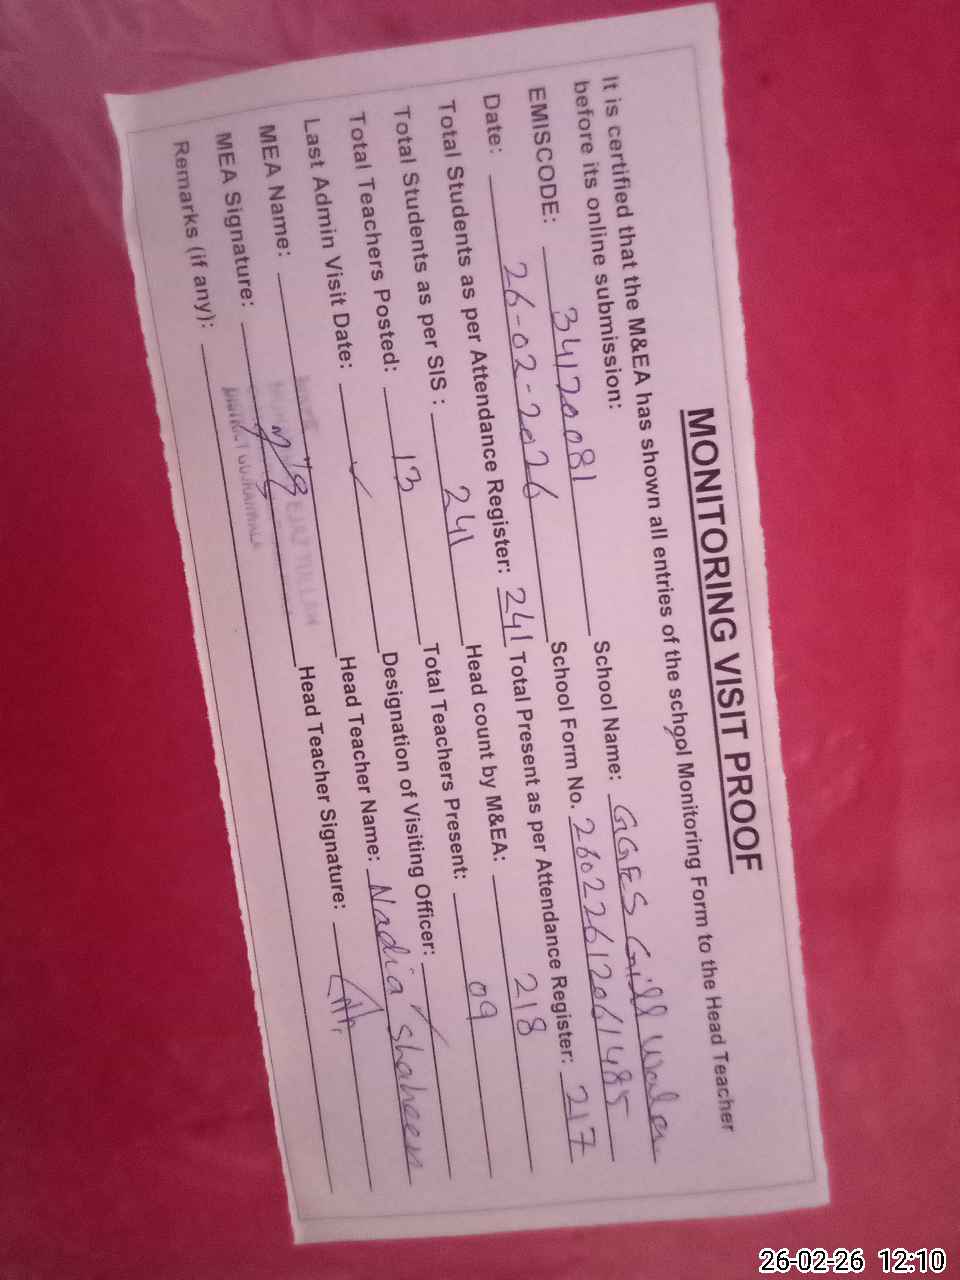 MONITORING VISIT PROOF
It is certified that the M&EA has shown all entries of the school Monitoring Form to the Head Teacher
before its online submission:
EMISCODE: 34120081 School Name: GGES Gill Wala
Date: 26-02-2026 School Form No. 2602261206 1485
Total Students as per Attendance Register: 241 Total Present as per Attendance Register: 217
Total Students as per SIS : 241 Head count by M&EA: 218
Total Teachers Posted: 13 Total Teachers Present: 09
Last Admin Visit Date: ✓ Designation of Visiting Officer: ✓
MEA Name: Head Teacher Name: Nadia Shaheen
MEA Signature: Head Teacher Signature:
Remarks (if any):
DISTRICT GUJRANWALA
26-02-26 12:10